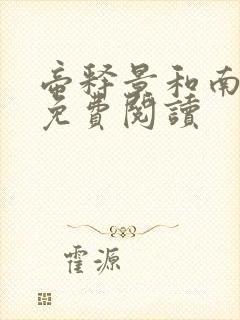 帝释景和南
免費閱讀
霍源